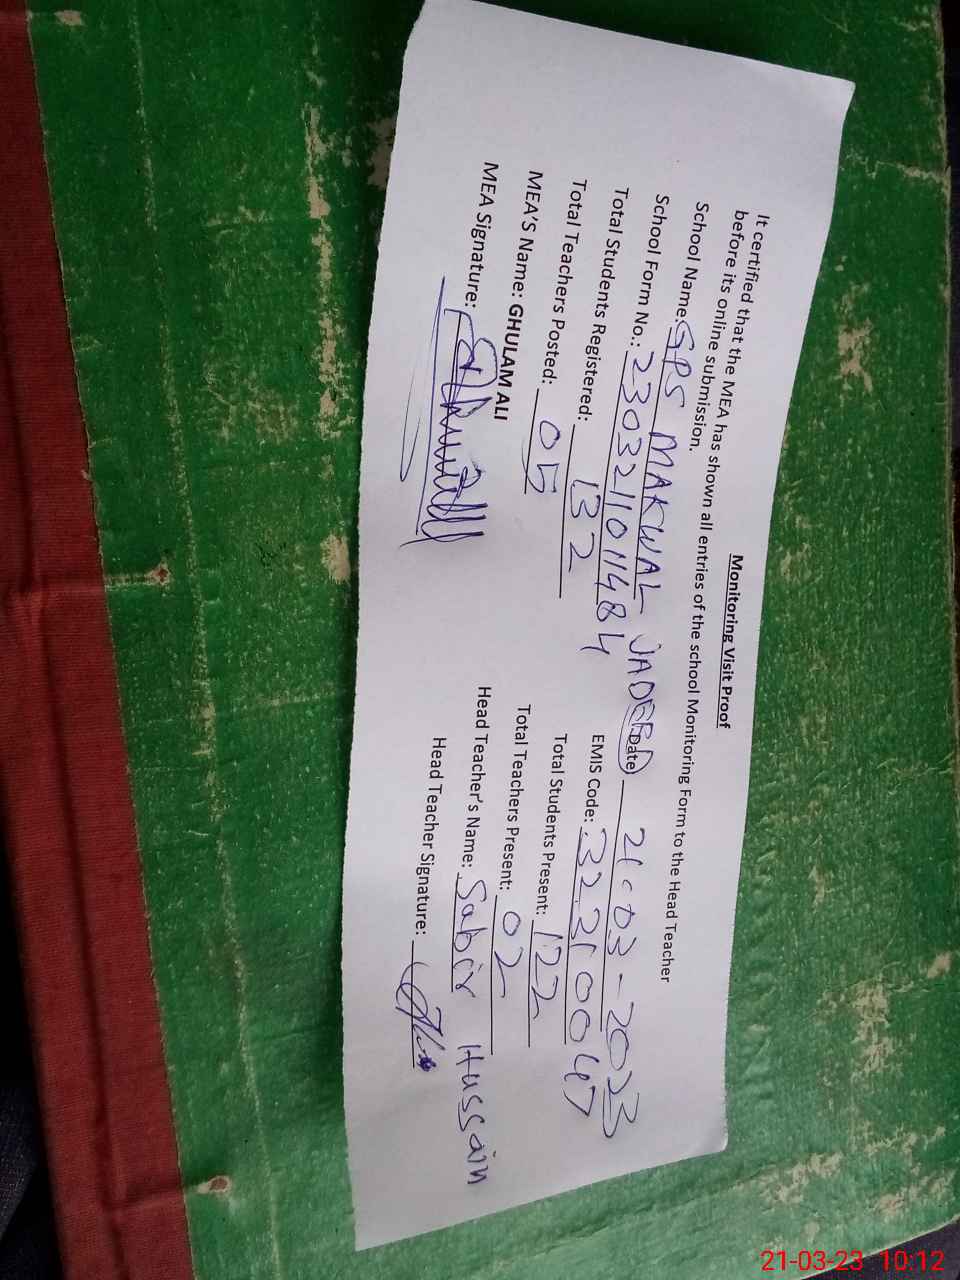 Monitoring Visit Proof
It certified that the MEA has shown all entries of the school Monitoring Form to the Head Teacher
before its online submission.
School Name: GPS MAKWAL JADEED Date 21-03-2023
School Form No.: 2303211011484 EMIS Code: 32210047
Total Students Registered: 132 Total Students Present: 122
Total Teachers Posted: 05 Total Teachers Present: 02
MEA'S Name: GHULAM ALI Head Teacher's Name: Sabir Hussain
MEA Signature: Head Teacher Signature:
21-03-23 10:12